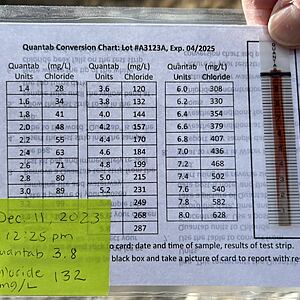 Quantab Conversion Chart: Lot #A3123A, Exp. 04/2025
Quantab (mg/L) Quantab (mg/L) Quantab (mg/L)
Units Chloride Units Chloride Units Chloride
1.4 28 3.6 120 6.0 308
1.6 34 3.8 132 6.2 330
1.8 41 4.0 144 6.4 354
2.0 48 4.2 157 6.6 379
2.2 55 4.4 170 6.8 407
2.4 63 4.6 184 7.0 436
2.6 71 4.8 199 7.2 468
2.8 80 5.0 215 7.4 502
3.0 89 5.2 231 7.6 540
249 7.8 582
268 8.0 628
287
Dec. 11, 2023
12:25 pm
Quantab 3.8
Chloride 132
mg/L
card: date and time of sample, results of test strip.
black box and take a picture of card to report with